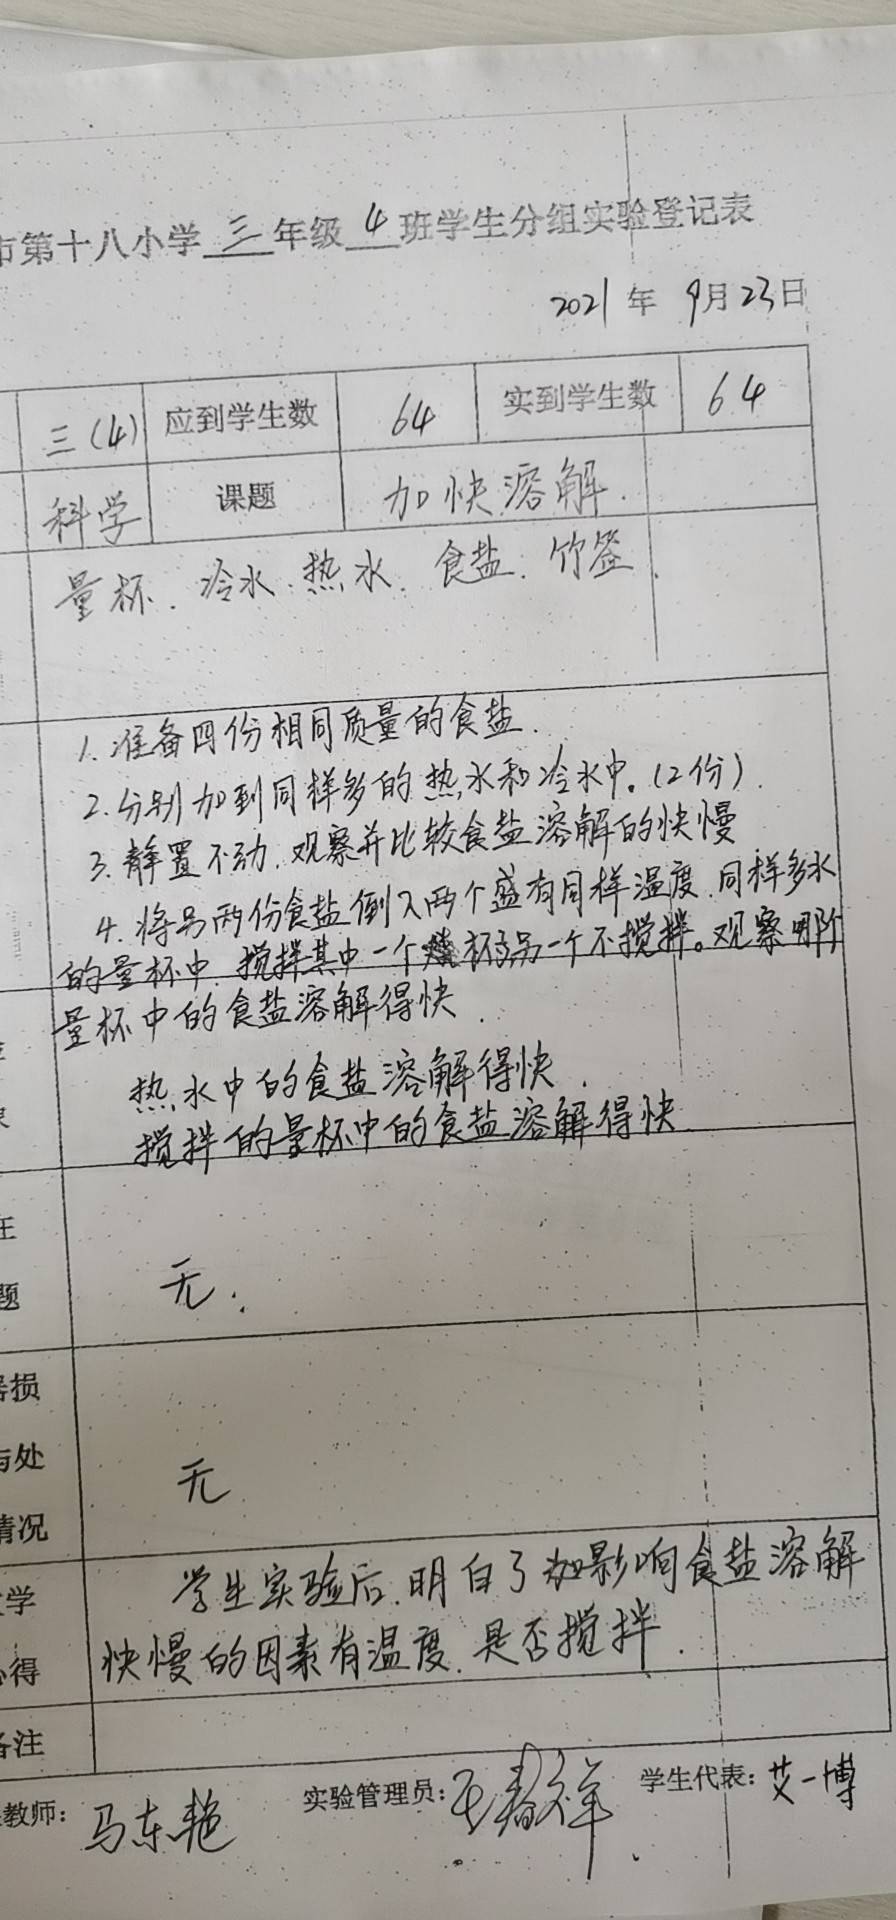 市第十八小学三年级4班学生分组实验登记表
2021年9月23日
三(4) 应到学生数 64 实到学生数 64
科学 课题 加快溶解.
量杯.冷水.热水.食盐.竹签.
1.准备四份相同质量的食盐.
2.分别加到同样多的热水和冷水中。(2份).
3.静置不动.观察并比较食盐溶解的快慢
4.将另两份食盐倒入两个盛有同样温度.同样多水
的量杯中.搅拌其中一个 杯 另一个不搅拌。观察哪个
量杯中的食盐溶解得快.
热水中的食盐溶解得快.
搅拌的量杯中的食盐溶解得快.
题
无.
损
与处
无
情况
学 学生实验后.明白了 影响食盐溶解
心得 快慢的因素有温度.是否搅拌.
备注
教师: 马东艳 实验管理员: 学生代表: 艾一博